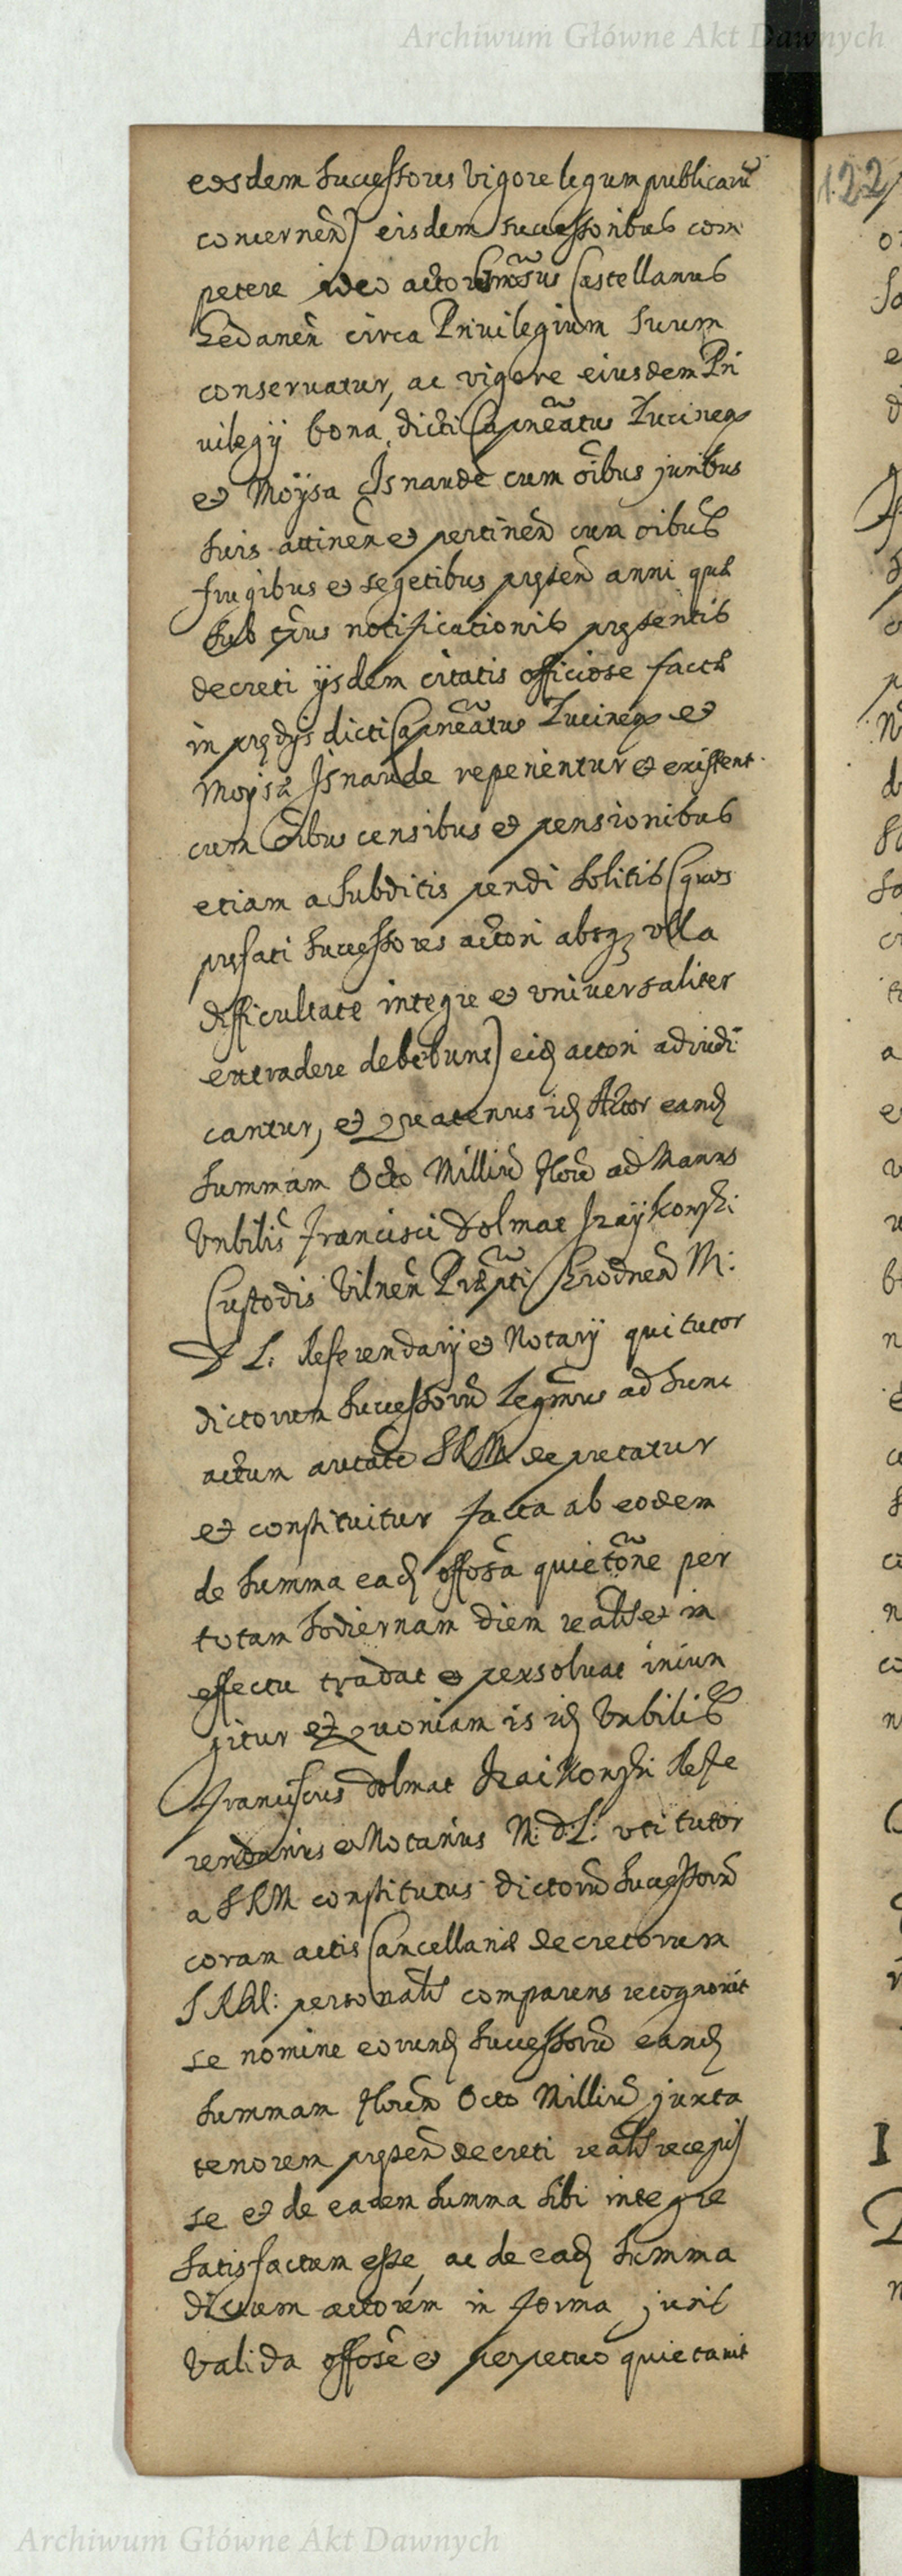 Archiwum Główne Akt Dawnych
122
eosdem Successores vigore legum publicarũ
concerneñ) eisdem successoribus com
petere ideo actor Castellanus
Gedaneñ circa Privilegium suum
conservatur, ac vigore eiusdem Pri
vilegÿ bona dicti Capneatus Zucineg
et Moÿsa Isnaude cum oibus juribus
suis attineñ et pertineñ cum oibus
frugibus et segetibus pręseñ anni quæ
sub tẽpus notificationis pręsentis
decreti ÿsdem citatis officiose factæ
in prędÿs dicti Capneatus Zucineg et
Moysa Isnaude reperientur et existent
cum oibus censibus et pensionibus
etiam a subditis pendi solitis (quos
pręfati Successores actori absq ulla
difficultate integre et universaliter
extradere debebunt) eid actori adiudi
cantur, et quatenus id Actor eand
summam Octo Milliũ floreñ ad manus
Vnbilis Francisci Dolmat Izaÿkowski
Custodis Vilneñ Præpti Grodneñ M:
D L: Referendarÿ et Notarÿ qui tutor
dictorum Successorũ legmus ad hunc
actum autate SRM deputatur
et constituitur facta ab eodem
de summa ead offosa quietõne per
totam hodiernam diem realr et in
effectu tradat et persolvat iniun
gitur et quoniam is id Vnbilis
Franciscus Dolmat Izaikowski Refe
rendarius et Notarius M: D: L: uti tutor
a SRM constitutus dictorũ Successorũ
coram actis Cancellariæ decretorum
SRM: personalr comparens recognovit
se nomine eorund Successorũ eand
summam floreñ Octo Milliũ juxta
tenorem pręseñ decreti realr recepis
se et de eadem summa sibi integre
satisfactum esse, ac de ead summa
dictum actorem in forma juris
valida offose et perpetuo quietavit
Archiwum Główne Akt Dawnych